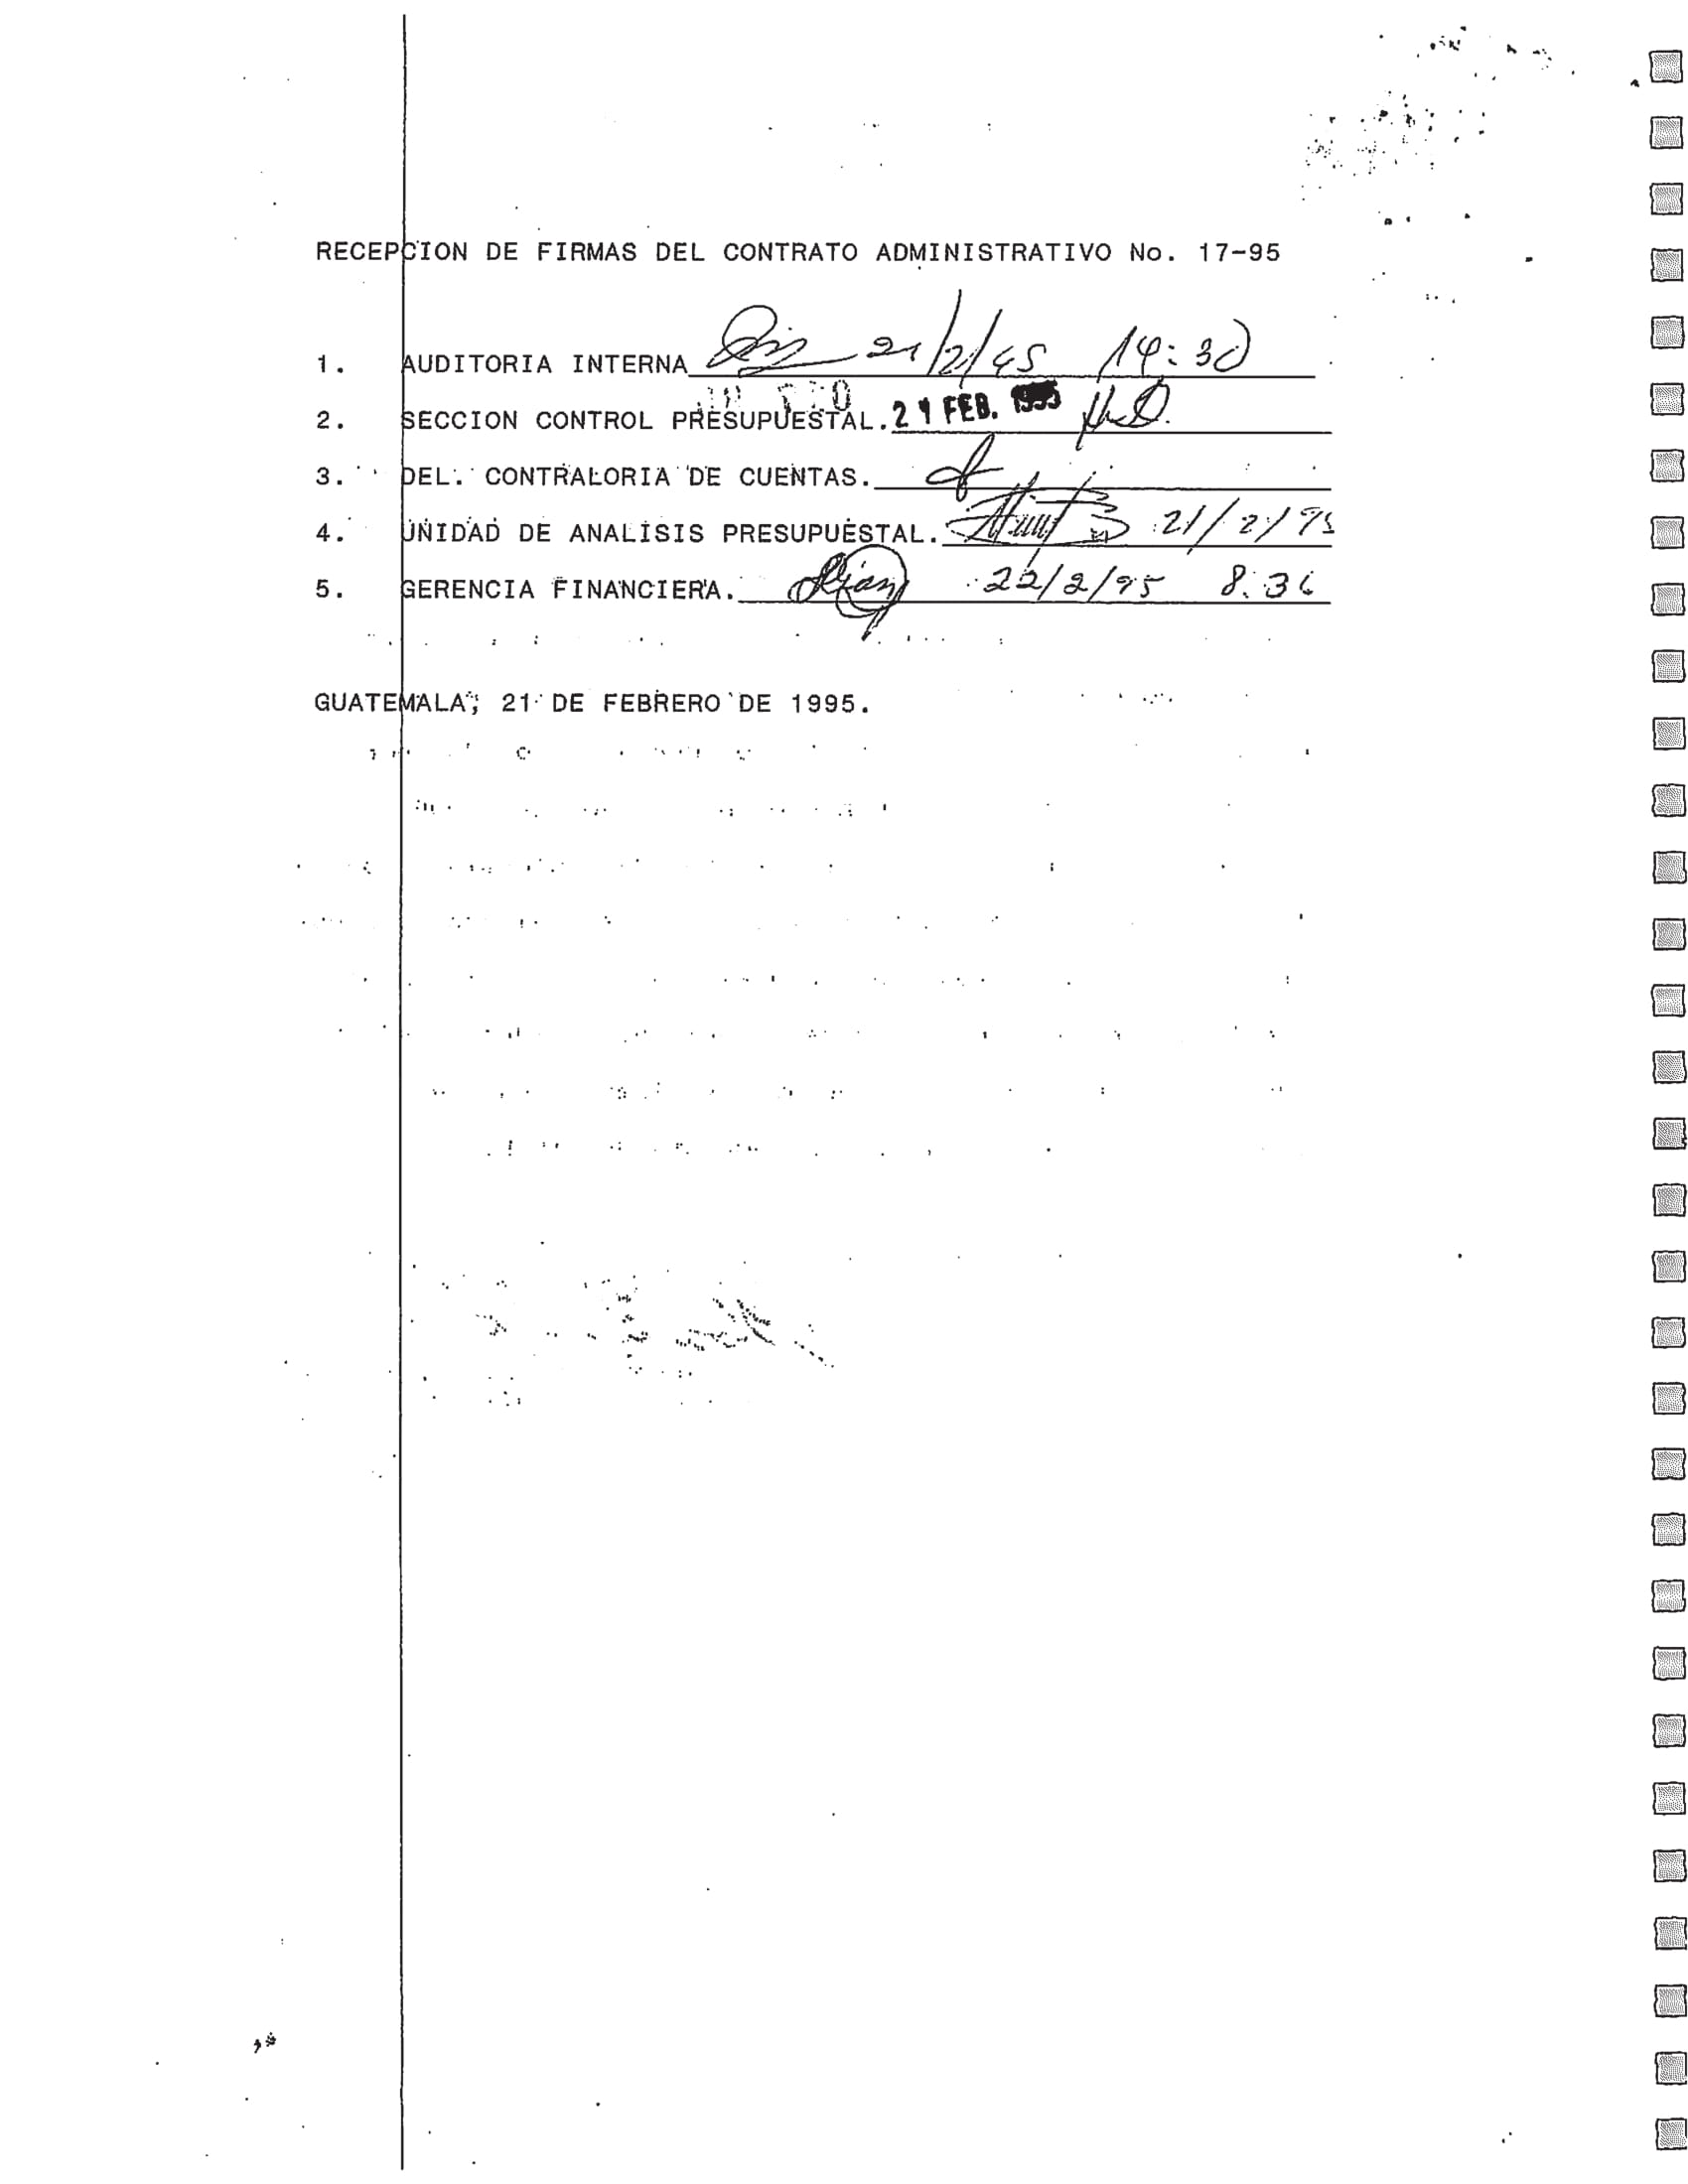 RECEPCION DE FIRMAS DEL CONTRATO ADMINISTRATIVO No. 17-95
1. AUDITORIA INTERNA 21/2/95 14:30
2. SECCION CONTROL PRESUPUESTAL. 21 FEB. 1995
3. DEL. CONTRALORIA DE CUENTAS.
4. UNIDAD DE ANALISIS PRESUPUESTAL. 21/2/95
5. GERENCIA FINANCIERA. 22/2/95 8:36
GUATEMALA, 21 DE FEBRERO DE 1995.